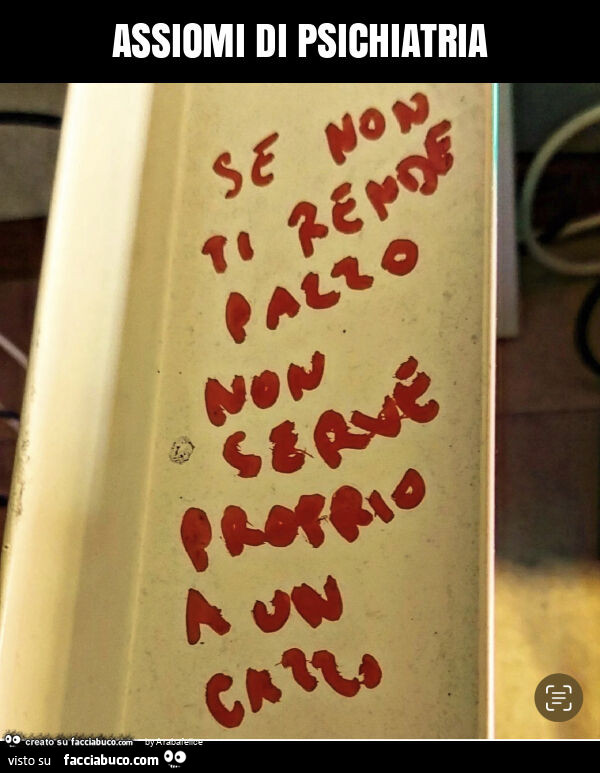 ASSIOMI DI PSICHIATRIA
SE NON
TI RENDE
PAZZO
NON
SERVE
PROPRIO
A UN
CAZZO
creato su facciabuco.com by Arabafelice
visto su facciabuco.com